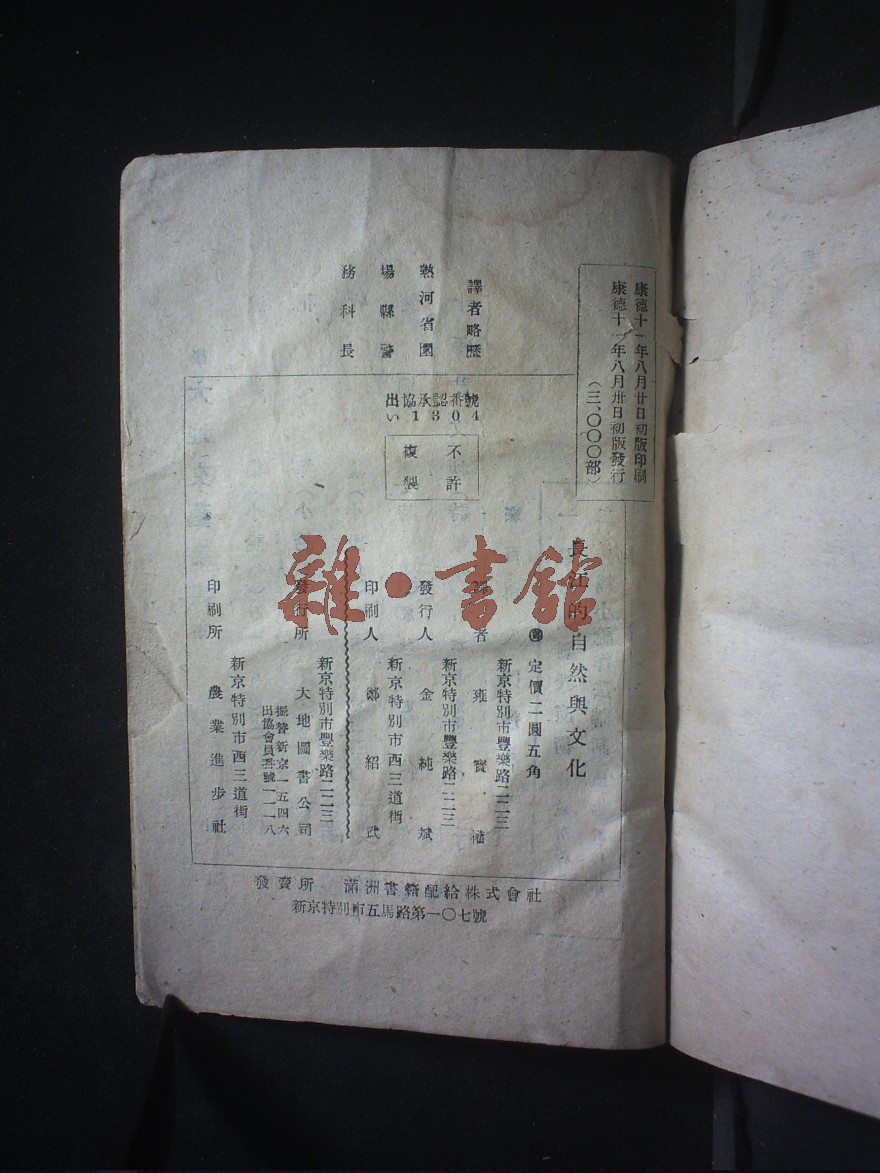 康德十一年八月廿日初版印刷
康德十一年八月卅日初版發行
(三、〇〇〇部)
長江的自然與文化
定價二圓五角
譯者 雍寶禧
新京特別市豐樂路二二三
發行人 金純斌
新京特別市豐樂路二二三
印刷人 鄭紹武
新京特別市西三道街
發行所 大地圖書公司
新京特別市豐樂路二二三
振替新京一五四六
出協會員番號一一一八
印刷所 農業進步社
新京特別市西三道街
出協承認番號
い1304
不許
複製
譯者略歷
熱河省圍
場縣警
務科長
發賣所 滿洲書籍配給株式會社
新京特別市五馬路第一〇七號
雜·書館